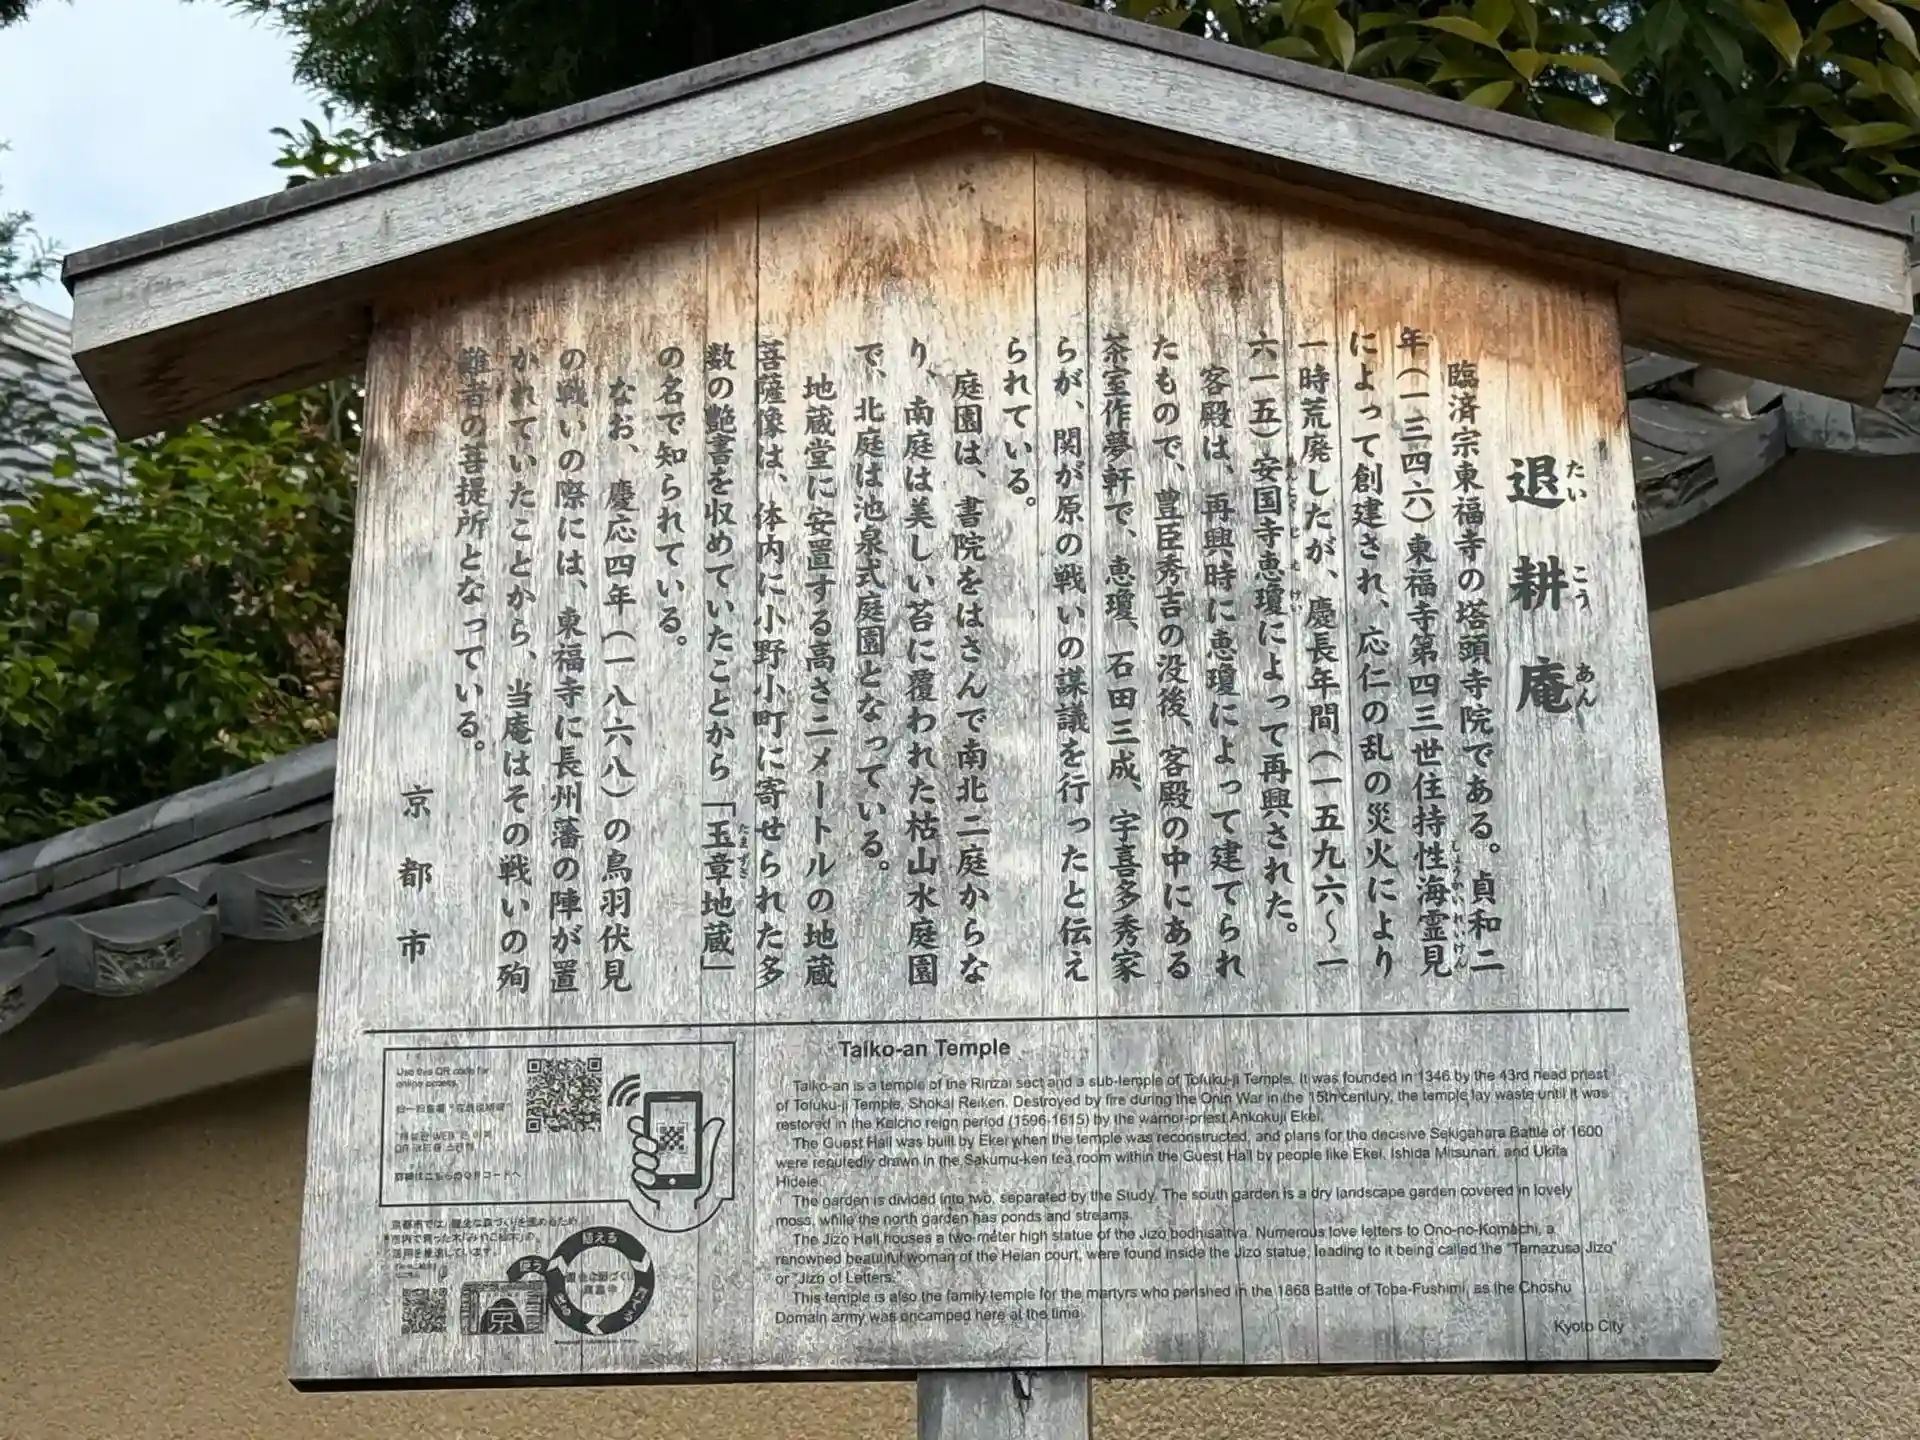 退耕庵
たいこうあん
臨済宗東福寺の塔頭寺院である。貞和二
年(一三四六)東福寺第四三世住持性海霊見
しょうかいれいけん
によって創建され、応仁の乱の災火により
一時荒廃したが、慶長年間(一五九六〜一
六一五)安国寺恵瓊によって再興された。
客殿は、再興時に恵瓊によって建てられ
たもので、豊臣秀吉の没後、客殿の中にある
茶室作夢軒で、恵瓊、石田三成、宇喜多秀家
らが、関が原の戦いの謀議を行ったと伝え
られている。
庭園は、書院をはさんで南北二庭からな
り、南庭は美しい苔に覆われた枯山水庭園
で、北庭は池泉式庭園となっている。
地蔵堂に安置する高さ二メートルの地蔵
菩薩像は、体内に小野小町に寄せられた多
数の艶書を収めていたことから「玉章地蔵」
たまずさ
の名で知られている。
なお、慶応四年(一八六八)の鳥羽伏見
の戦いの際には、東福寺に長州藩の陣が置
かれていたことから、当庵はその戦いの殉
難者の菩提所となっている。
京都市
Use this QR code for
online access.
詳細はこちらのQRコードへ
京都市では、健全な森づくりを進めるため、
市内で育った木「みやこ杣木」の
活用を推進しています。
植える
京
Taiko-an Temple
Taiko-an is a temple of the Rinzai sect and a sub-temple of Tofuku-ji Temple. It was founded in 1346 by the 43rd head priest
of Tofuku-ji Temple, Shokai Reiken. Destroyed by fire during the Onin War in the 15th century, the temple lay waste until it was
restored in the Keicho reign period (1596-1615) by the warrior-priest Ankokuji Ekei.
The Guest Hall was built by Ekei when the temple was reconstructed, and plans for the decisive Sekigahara Battle of 1600
were reputedly drawn in the Sakumu-ken tea room within the Guest Hall by people like Ekei, Ishida Mitsunari, and Ukita
Hideie.
The garden is divided into two, separated by the Study. The south garden is a dry landscape garden covered in lovely
moss, while the north garden has ponds and streams.
The Jizo Hall houses a two-meter high statue of the Jizo bodhisattva. Numerous love letters to Ono-no-Komachi, a
renowned beautiful woman of the Heian court, were found inside the Jizo statue, leading to it being called the "Tamazusa Jizo"
or "Jizo of Letters."
This temple is also the family temple for the martyrs who perished in the 1868 Battle of Toba-Fushimi, as the Choshu
Domain army was encamped here at the time.
Kyoto City